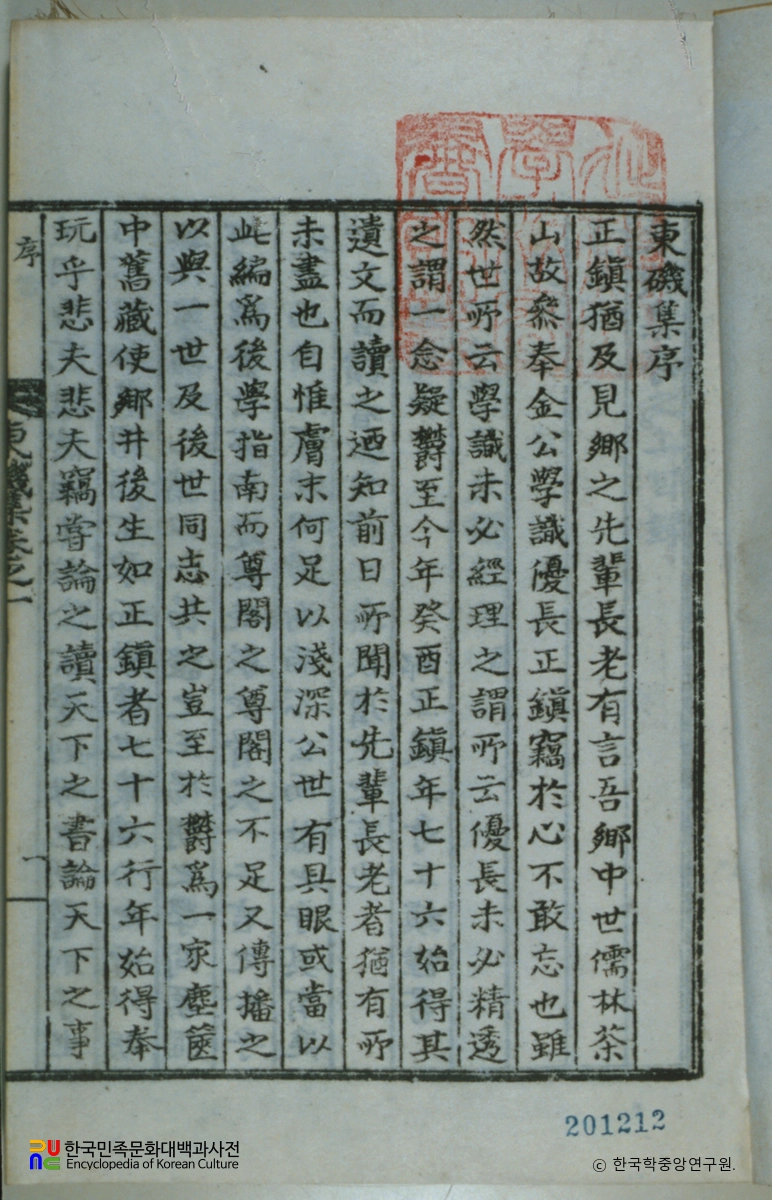 東磯集序
正鎭猶及見鄕之先輩長老有言吾鄕中世儒林茶
山故叅奉金公學識優長正鎭竊於心不敢忘也雖
然世所云學識未必經理之謂所云優長未必精透
之謂一念疑欝至今年癸酉正鎭年七十六始得其
遺文而讀之迺知前日所聞於先輩長老者猶有所
未盡也自惟膚末何足以淺深公世有具眼或當以
此編爲後學指南而尊閣之尊閣之不足又傳播之
以與一世及後世同志共之豈至於欝爲一家塵篋
中舊藏使鄕井後生如正鎭者七十六行年始得奉
玩乎悲夫悲夫竊嘗論之讀天下之書論天下之事
序
東磯集卷之一
一
201212
한국민족문화대백과사전
Encyclopedia of Korean Culture
© 한국학중앙연구원.